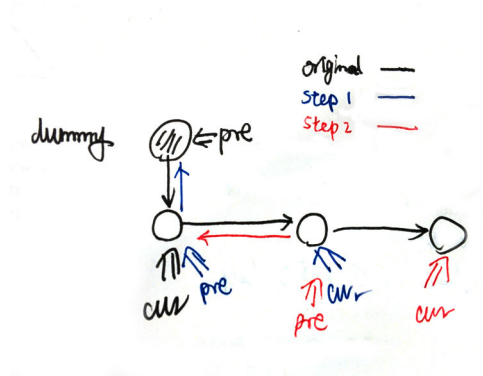 original
step 1
step 2
dummy
pre
cur
pre
cur
pre
cur